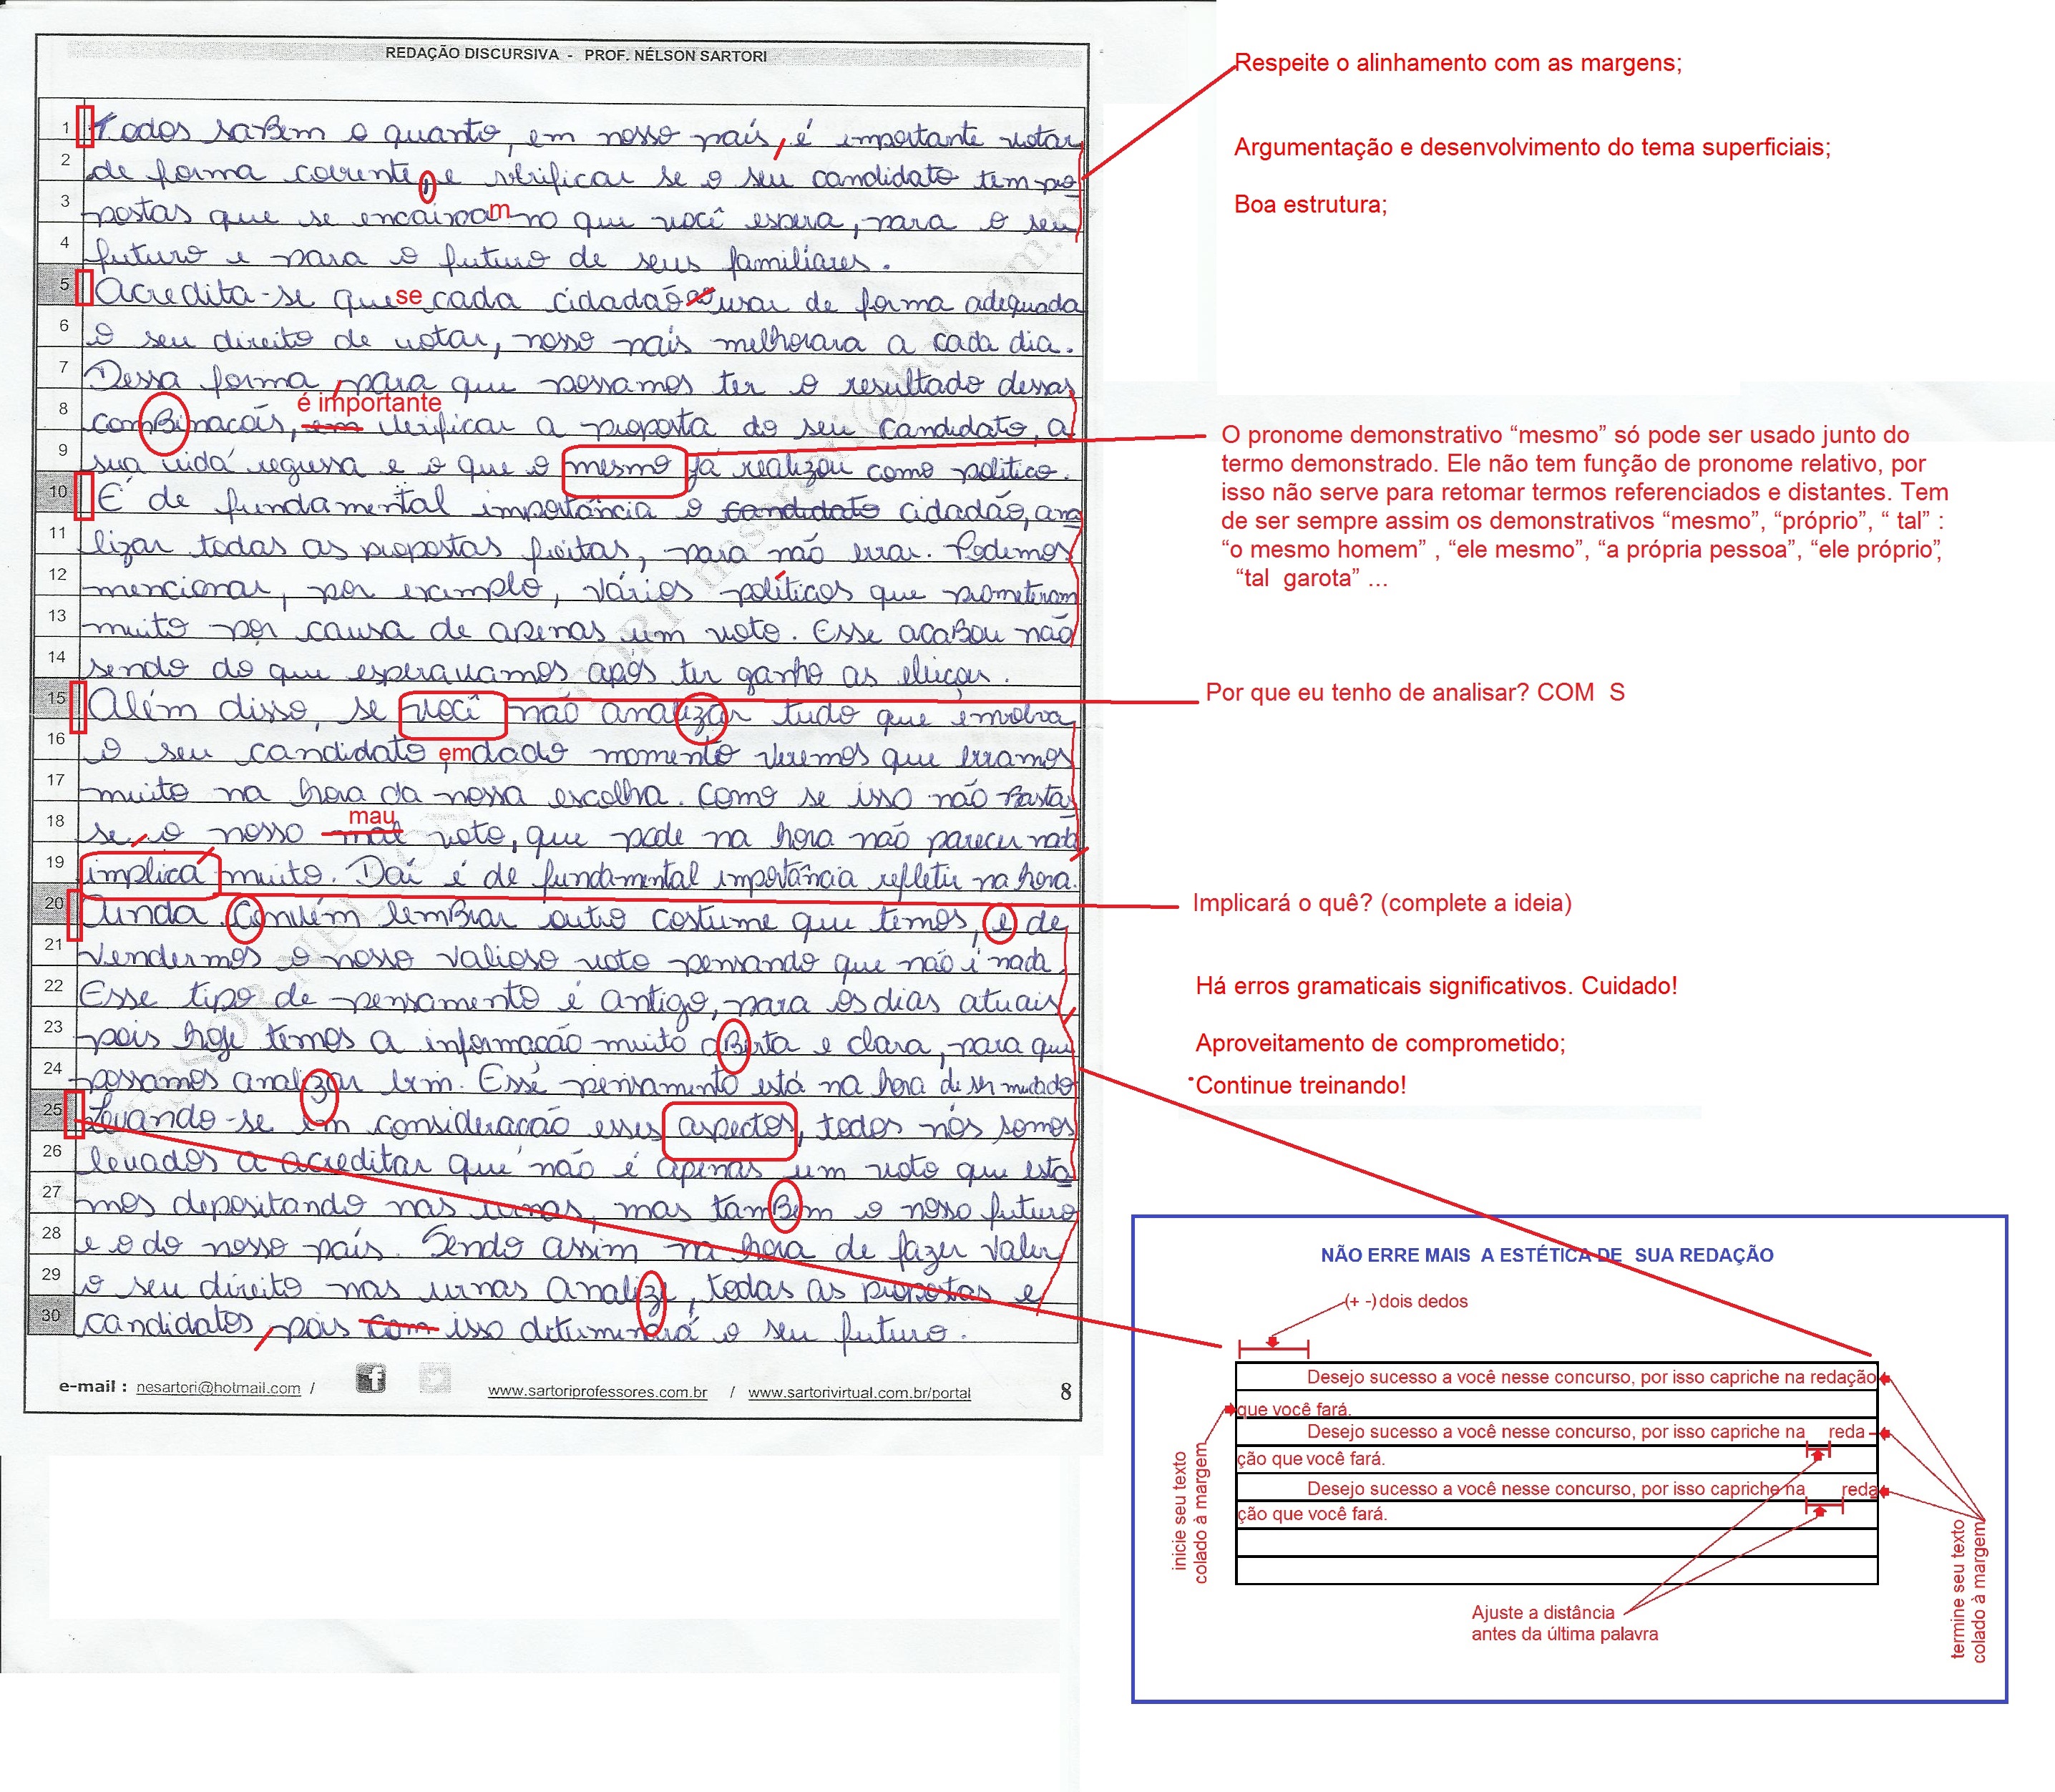 REDAÇÃO DISCURSIVA - PROF. NÉLSON SARTORI
1 Todos saBem o quanto, em nosso país, é importante votar
2 de forma coerente, e verificar se o seu candidato tem pro
3 postas que se encaixam no que você espera, para o seu
4 futuro e para o futuro de seus familiares.
5 Acredita-se que se cada cidadão usar de forma adequada
6 o seu direito de votar, nosso país melhorara a cada dia.
7 Dessa forma, para que possamos ter o resultado dessas
é importante
8 comBinacoís, em verificar a proposta do seu candidato, a
9 sua vida regressa e o que o mesmo já realizou como político.
10 É de fundamental importância o candidato cidadão, ana
11 lizar todas as propostas feitas, para não errar. Podemos
12 mencionar, por exemplo, vários políticos que prometeram
13 muito por causa de apenas um voto. Esse acaBou não
14 sendo do que esperavamos após ter ganho as eleiçoes.
15 Além disso, se você não analizar tudo que envolva
16 o seu candidato, em dado momento veremos que erramos
17 muito na hora da nossa escolha. Como se isso não Basta
mau
18 se, o nosso mal voto, que pode na hora não parecer nada
19 implicá muito. Daí é de fundamental importância refletir na hora.
20 Ainda. Convém lemBrar outro costume que temos, e de
21 vendermos o nosso valioso voto pensando que não é nada.
22 Esse tipo de pensamento é antigo, para os dias atuais,
23 pois hoje temos a informação muito aBerta e clara, para que
24 possamos analizar bem. Esse pensamento está na hora de ser mudado
25 Levando-se em consideração esses aspectos, todos nós somos
26 levados a acreditar que não é apenas um voto que esta
27 mos depositando nas urnas, mas tamBem o nosso futuro
28 e o do nosso país. Sendo assim na hora de fazer valer
29 o seu direito nas urnas analize, todas as propostas e
30 candidatos, pois com isso determinará o seu futuro.
e-mail : nesartori@hotmail.com / www.sartoriprofessores.com.br / www.sartorivirtual.com.br/portal 8
Respeite o alinhamento com as margens;
Argumentação e desenvolvimento do tema superficiais;
Boa estrutura;
O pronome demonstrativo “mesmo” só pode ser usado junto do
termo demonstrado. Ele não tem função de pronome relativo, por
isso não serve para retomar termos referenciados e distantes. Tem
de ser sempre assim os demonstrativos “mesmo”, “próprio”, “ tal” :
“o mesmo homem” , “ele mesmo”, “a própria pessoa”, “ele próprio”,
“tal garota” ...
Por que eu tenho de analisar? COM S
Implicará o quê? (complete a ideia)
Há erros gramaticais significativos. Cuidado!
Aproveitamento de comprometido;
Continue treinando!
NÃO ERRE MAIS A ESTÉTICA DE SUA REDAÇÃO
(+ -) dois dedos
Desejo sucesso a você nesse concurso, por isso capriche na redação
que você fará.
Desejo sucesso a você nesse concurso, por isso capriche na reda -
ção que você fará.
Desejo sucesso a você nesse concurso, por isso capriche na reda
ção que você fará.
inicie seu texto
colado à margem
termine seu texto
colado à margem
Ajuste a distância
antes da última palavra